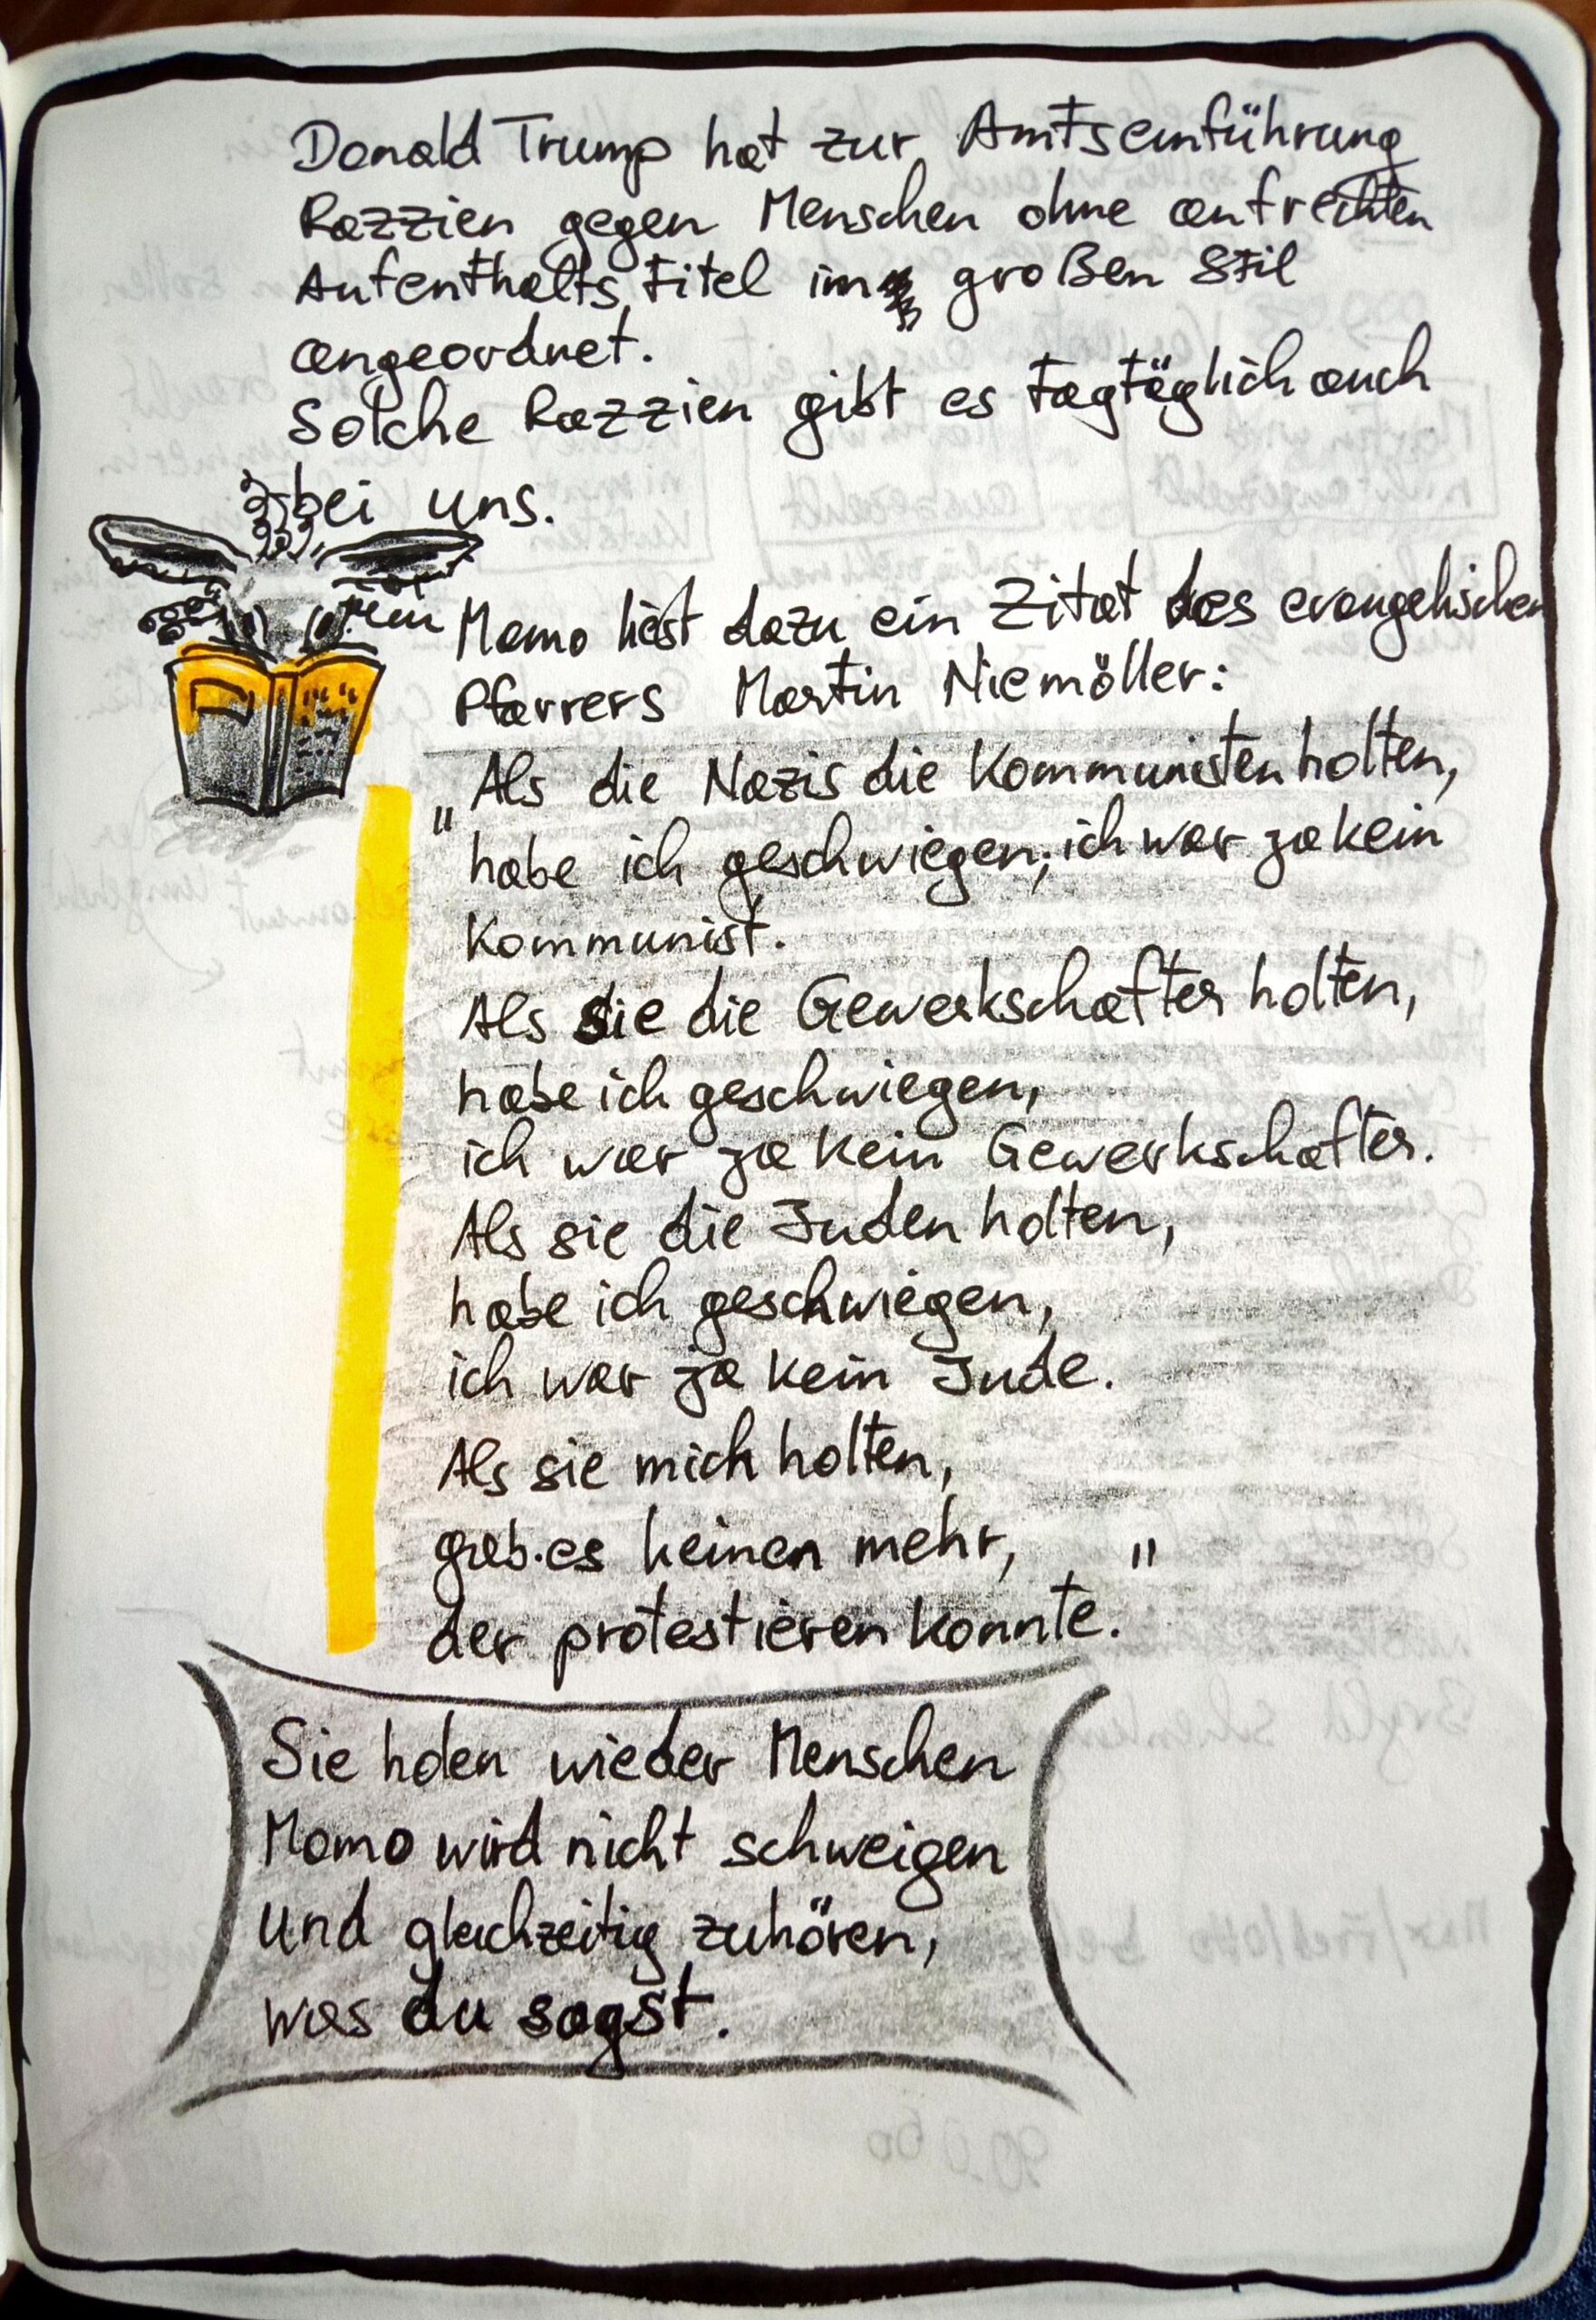 Donald Trump hat zur Amtseinführung
Razzien gegen Menschen ohne aufrechten
Aufenthaltstitel im großen Stil
angeordnet.
Solche Razzien gibt es tagtäglich auch
bei uns.
Momo liest dazu ein Zitat des evangelischen
Pfarrers Martin Niemöller:
„Als die Nazis die Kommunisten holten,
habe ich geschwiegen; ich war ja kein
Kommunist.
Als sie die Gewerkschafter holten,
habe ich geschwiegen,
ich war ja kein Gewerkschafter.
Als sie die Juden holten,
habe ich geschwiegen,
ich war ja kein Jude.
Als sie mich holten,
gab es keinen mehr,
der protestieren konnte."
Sie holen wieder Menschen
Momo wird nicht schweigen
und gleichzeitig zuhören,
was du sagst.